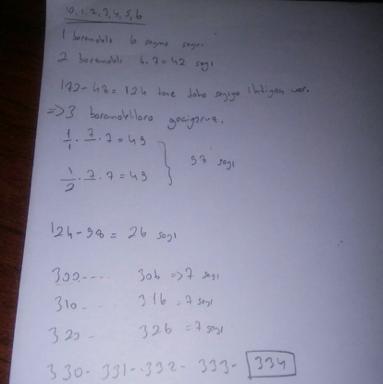 0, 1, 2, 3, 4, 5, 6
1 basamaklı 6 sayma sayısı
2 basamaklı 6.7=42 sayı
172-48=124 tane daha sayıya ihtiyaç var.
=>3 basamaklılara geçiyoruz.
1/1 . 7 . 7 = 49
98 sayı
1/2 . 7 . 7 = 49
124-98= 26 sayı
300..... 306 => 7 sayı
310.. 316 = 7 sayı
320.. 326 = 7 sayı
330- 331- 332- 333- 334